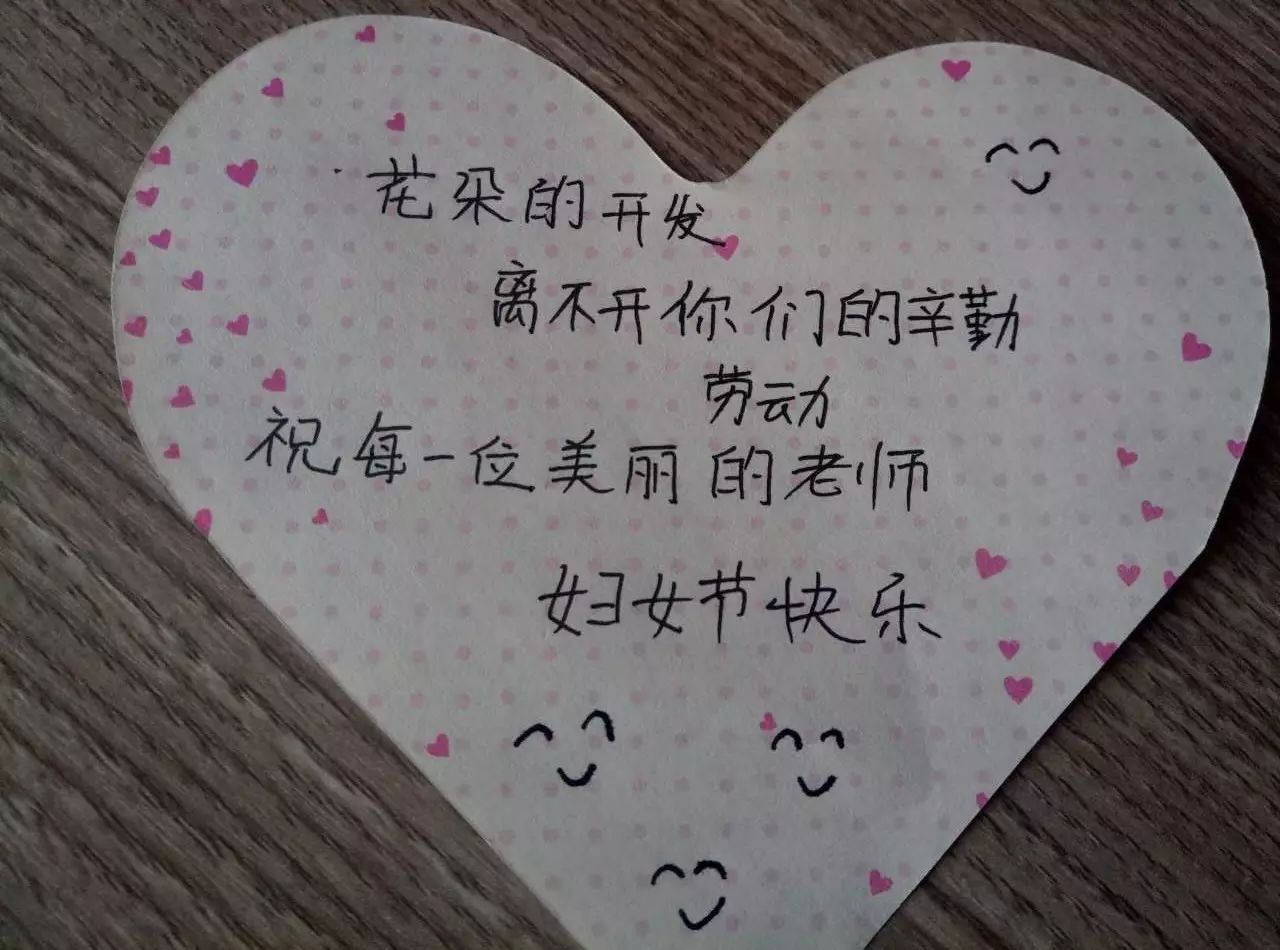 花朵的开发
离不开你们的辛勤
劳动
祝每一位美丽的老师
妇女节快乐